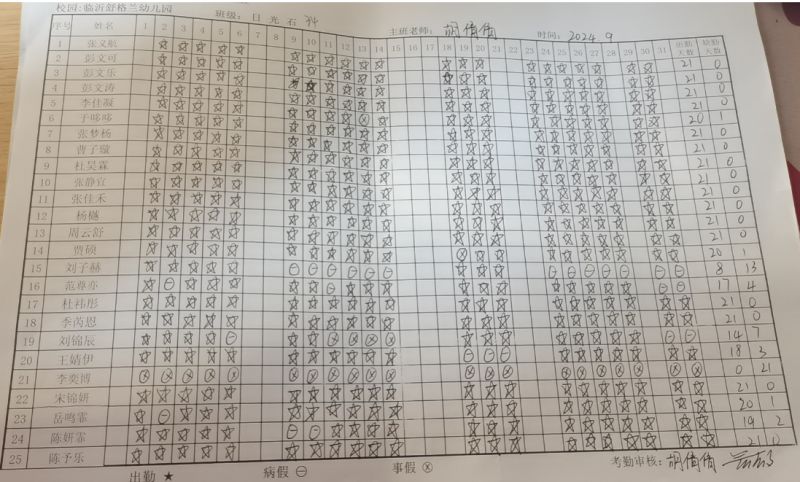 校园:临沂舒格兰幼儿园 班级: 日光石 科 主班老师: 胡倩倩 时间: 2024.9
序号 姓名 1 2 3 4 5 6 7 8 9 10 11 12 13 14 15 16 17 18 19 20 21 22 23 24 25 26 27 28 29 30 31 出勤天数 缺勤天数
1 张文航 ☆ ☆ ☆ ☆ ☆ ☆ ☆ ☆ ☆ ☆ ☆ ☆ ☆ ☆ ☆ ☆ ☆ ☆ ☆ ☆ ☆ 21 0
2 彭文可 21 0
3 彭文乐 21 0
4 彭文涛 21 0
5 李仕凝 21 0
6 于哆哆 20 1
7 张梦杨 21 0
8 曹子璇 21 0
9 杜昊霖 21 0
10 张静宜 21 0
11 张佳禾 21 0
12 杨樾 21 0
13 周云舒 21 0
14 贾硕 20 1
15 刘子赫 8 13
16 范尊亦 17 4
17 杜祎彤 21 0
18 季芮恩 21 0
19 刘锦辰 14 7
20 王婧伊 18 3
21 李奕博 0 21
22 朱锦妍 21 0
23 岳鸣霏 20 1
24 陈妍霏 19 2
25 陈予乐 21 0
出勤 ★ 病假 ⊖ 事假 ⊗ 考勤审核: 胡倩倩